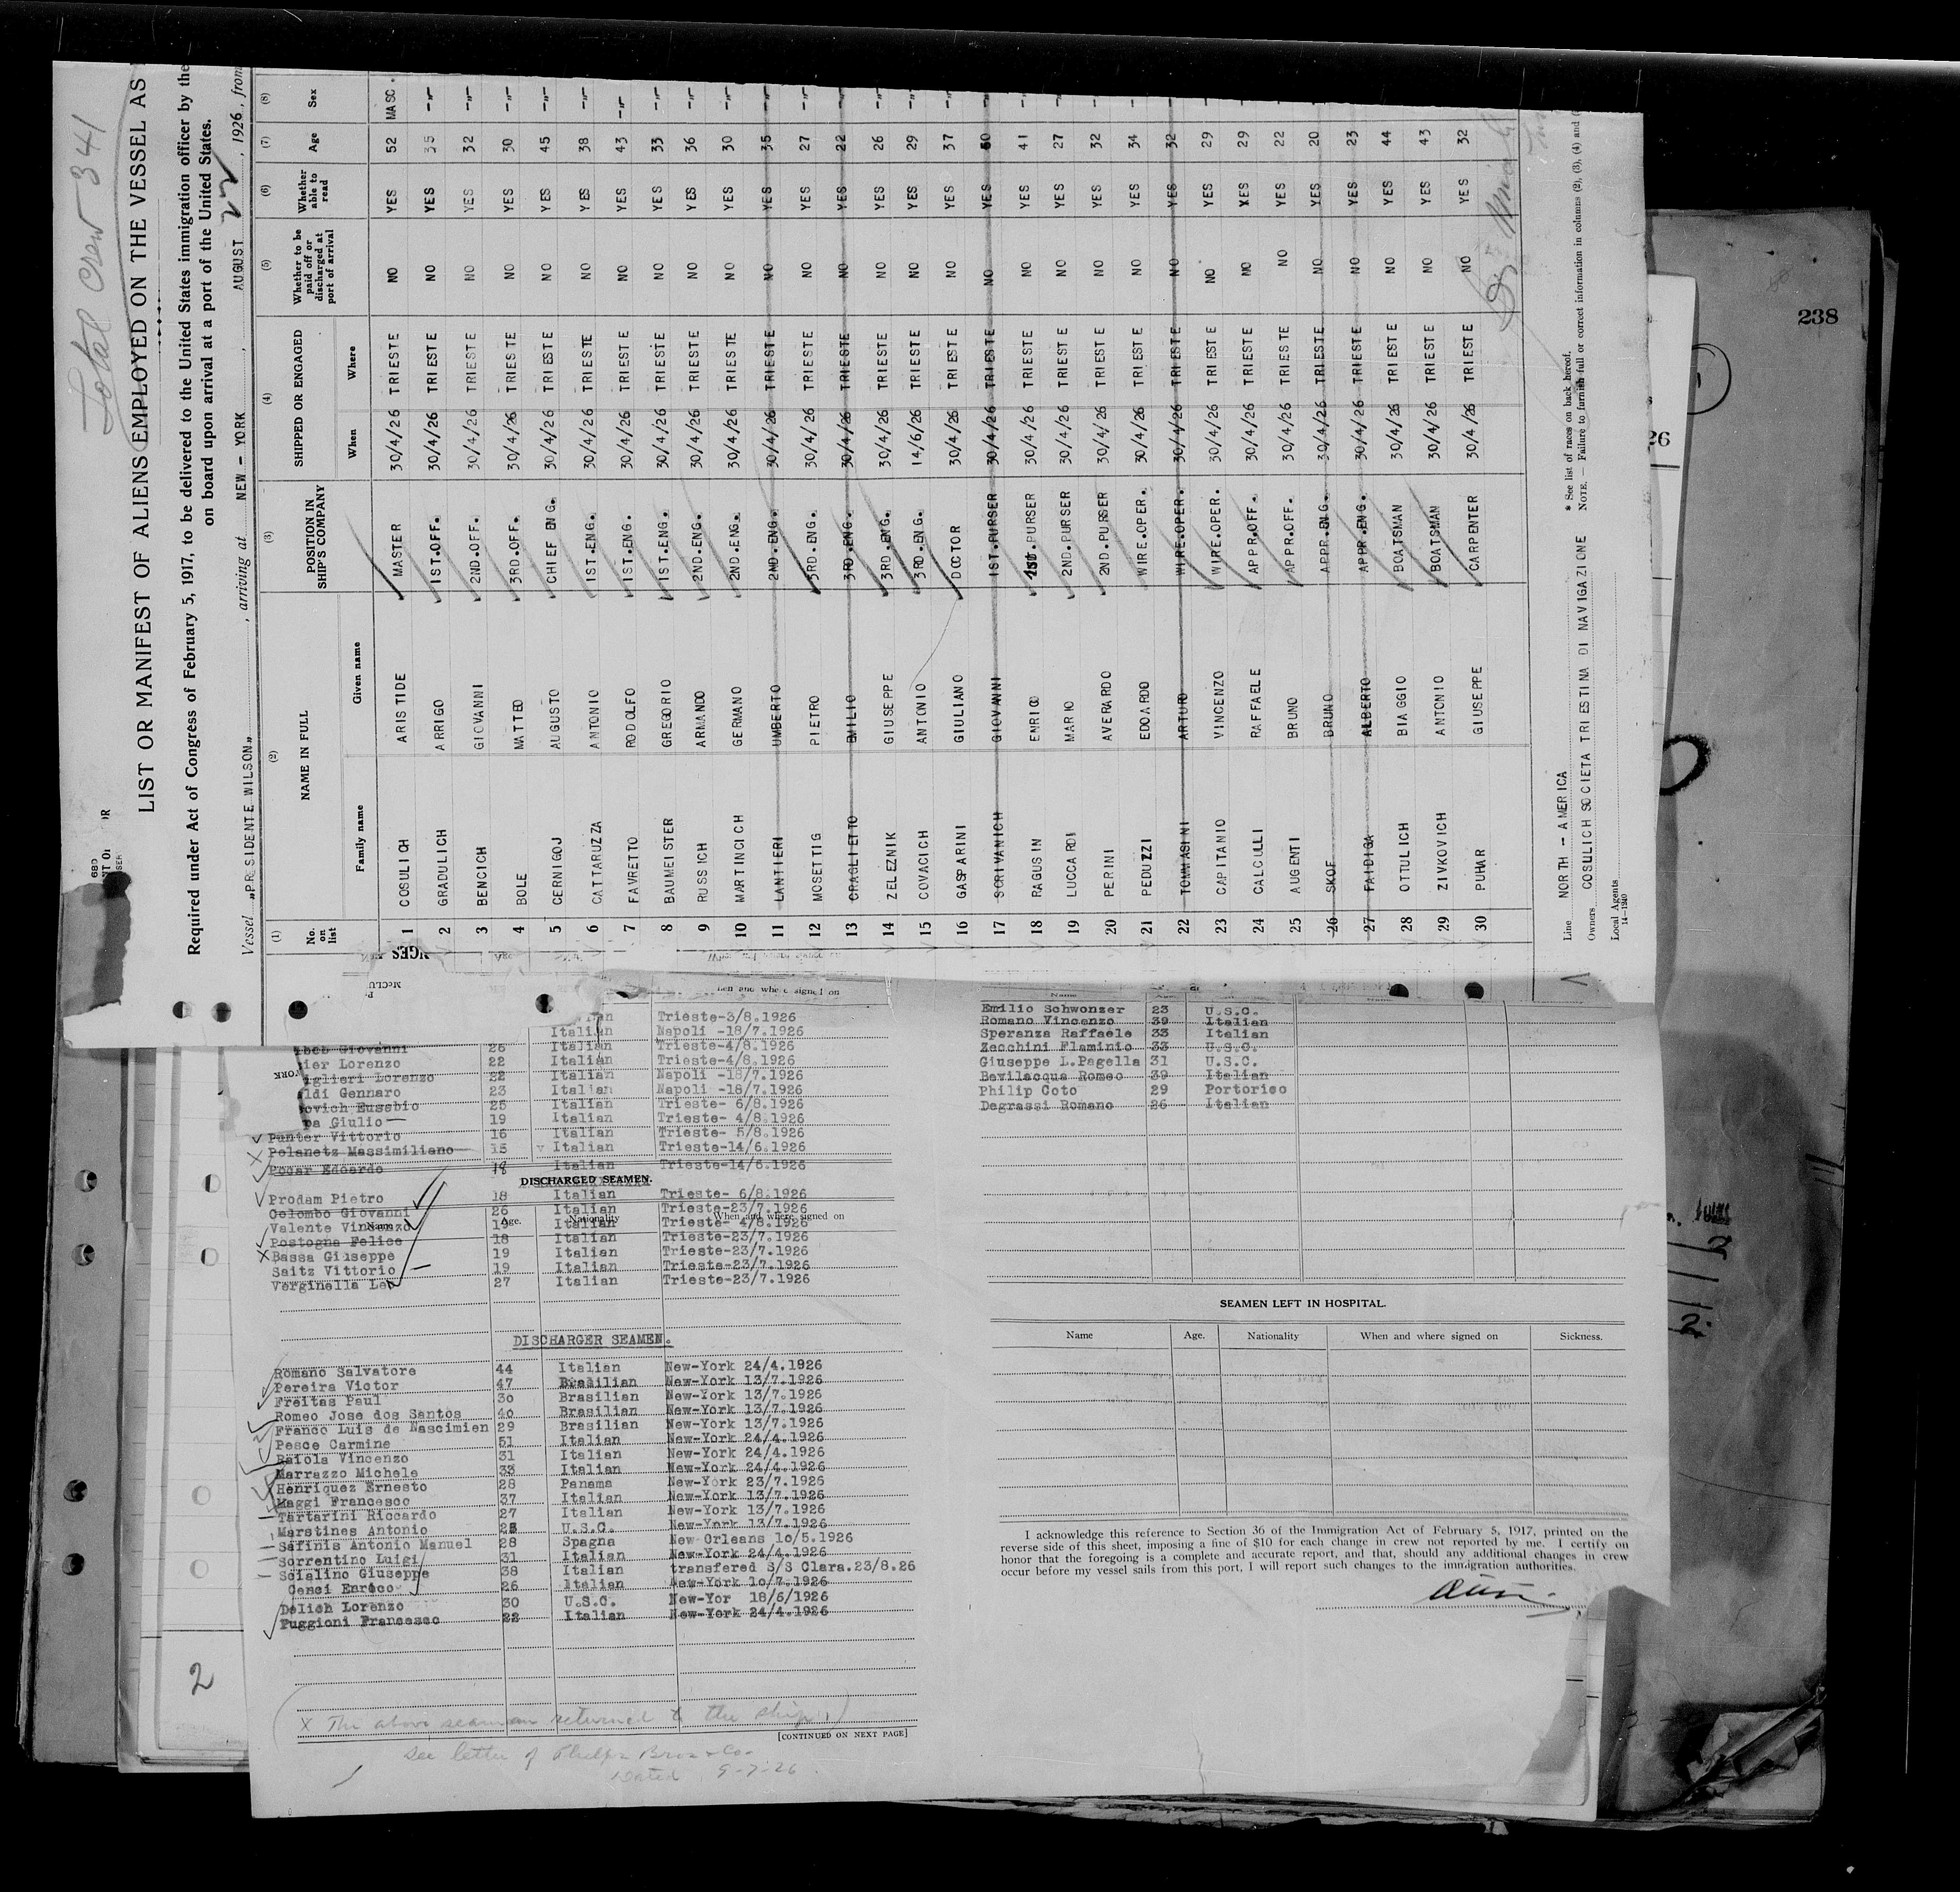 Total Crew 341
LIST OR MANIFEST OF ALIENS EMPLOYED ON THE VESSEL AS
Required under Act of Congress of February 5, 1917, to be delivered to the United States immigration officer by the
on board upon arrival at a port of the United States.
Vessel „PRESIDENTE WILSON„ , arriving at NEW - YORK , AUGUST 22 , 1926, from
(1) (2) (3) (4) (5) (6) (7) (8)
No. on list NAME IN FULL POSITION IN SHIP'S COMPANY SHIPPED OR ENGAGED Whether to be paid off or discharged at port of arrival Whether able to read Age Sex
Family name Given name When Where
1 COSULICH ARISTIDE MASTER 30/4/26 TRIESTE NO YES 52 MASC.
2 GRADULICH ARRIGO 1ST.OFF. 30/4/26 TRIESTE NO YES 35 -"-
3 BENCICH GIOVANNI 2ND.OFF. 30/4/26 TRIESTE NO YES 32 -"-
4 BOLE MATTEO 3RD.OFF. 30/4/26 TRIESTE NO YES 30 -"-
5 CERNIGOJ AUGUSTO CHIEF ENG. 30/4/26 TRIESTE NO YES 45 -"-
6 CATTARUZZA ANTONIO 1ST.ENG. 30/4/26 TRIESTE NO YES 38 -"-
7 FAVRETTO RODOLFO 1ST.ENG. 30/4/26 TRIESTE NO YES 43 -"-
8 BAUMEISTER GREGORIO 1ST.ENG. 30/4/26 TRIESTE NO YES 33 -"-
9 RUSSICH ARMANDO 2ND.ENG. 30/4/26 TRIESTE NO YES 36 -"-
10 MARTINCICH GERMANO 2ND.ENG. 30/4/26 TRIESTE NO YES 30 -"-
11 LANTIERI UMBERTO 2ND.ENG. 30/4/26 TRIESTE NO YES 35 -"-
12 MOSETTIG PIETRO 3RD.ENG. 30/4/26 TRIESTE NO YES 27 -"-
13 CRAGLIETTO EMILIO 3RD.ENG. 30/4/26 TRIESTE NO YES 22 -"-
14 ZELEZNIK GIUSEPPE 3RD.ENG. 30/4/26 TRIESTE NO YES 26 -"-
15 COVACICH ANTONIO 3RD.ENG. 14/6/26 TRIESTE NO YES 29 -"-
16 GASPARINI GIULIANO DOCTOR 30/4/26 TRIESTE NO YES 37 -"-
17 SCRIVANICH GIOVANNI 1ST.PURSER 30/4/26 TRIESTE NO YES 50 -"-
18 RAGUSIN ENRICO 1ST.PURSER 30/4/26 TRIESTE NO YES 41 -"-
19 LUCCARDI MARIO 2ND.PURSER 30/4/26 TRIESTE NO YES 27 -"-
20 PERINI AVERARDO 2ND.PURSER 30/4/26 TRIESTE NO YES 32
21 PEDUZZI EDOARDO WIRE.OPER. 30/4/26 TRIESTE NO YES 34
22 TOMMASINI ARTURO WIRE.OPER. 30/4/26 TRIESTE NO YES 32
23 CAPITANIO VINCENZO WIRE.OPER. 30/4/26 TRIESTE NO YES 29
24 CALCULLI RAFFAELE APPR.OFF. 30/4/26 TRIESTE NO YES 29
25 AUGENTI BRUNO APPR.OFF. 30/4/26 TRIESTE NO YES 22
26 SKOF BRUNO APPR.ENG. 30/4/26 TRIESTE NO YES 20
27 FAIDIGA ALBERTO APPR.ENG. 30/4/26 TRIESTE NO YES 23
28 OTTULICH BIAGGIO BOATSMAN 30/4/26 TRIESTE NO YES 44
29 ZIVKOVICH ANTONIO BOATSMAN 30/4/26 TRIESTE NO YES 43
30 PUHAR GIUSEPPE CARPENTER 30/4/26 TRIESTE NO YES 32
Line NORTH -- AMERICA
Owners COSULICH SOCIETA TRIESTINA DI NAVIGAZIONE
Local Agents
14-1240
* See list of races on back hereof.
NOTE. — Failure to furnish full or correct information in columns (2), (3), (4) and (
238
26
McCLU
when and where signed on
Italian Trieste-3/8.1926
Italian Napoli -18/7.1926
Giovanni 26 Italian Trieste-4/8.1926
ier Lorenzo 22 Italian Trieste-4/8.1926
iglieri Lorenzo 22 Italian Napoli -18/7.1926
ldi Gennaro 23 Italian Napoli -18/7.1926
ovich Eusebio 25 Italian Trieste- 6/8.1926
pa Giulio 19 Italian Trieste- 4/8.1926
Punter Vittorio 16 Italian Trieste- 5/8.1926
Polanetz Massimiliano 15 Italian Trieste-14/6.1926
Pocar Edoardo 18 Italian Trieste-14/6.1926
DISCHARGED SEAMEN.
Name. Age. Nationality When and where signed on
Prodam Pietro 18 Italian Trieste- 6/8.1926
Colombo Giovanni 26 Italian Trieste-23/7.1926
Valente Vincenzo 19 Italian Trieste- 4/8.1926
Postogna Felice 18 Italian Trieste-23/7.1926
Bassa Giuseppe 19 Italian Trieste-23/7.1926
Saitz Vittorio 19 Italian Trieste-23/7.1926
Verginella Leo 27 Italian Trieste-23/7.1926
DISCHARGER SEAMEN.
Romano Salvatore 44 Italian New-York 24/4.1926
Pereira Victor 47 Brasilian New-York 13/7.1926
Freitas Paul 30 Brasilian New-York 13/7.1926
Romeo Jose dos Santos 40 Brasilian New-York 13/7.1926
Franco Luis de Nascimien 29 Brasilian New-York 13/7.1926
Pesce Carmine 51 Italian New-York 24/4.1926
Raiola Vincenzo 31 Italian New-York 24/4.1926
Marrazzo Michele 33 Italian New-York 24/4.1926
Henriquez Ernesto 28 Panama New-York 23/7.1926
Maggi Francesco 37 Italian New-York 13/7.1926
Tartarini Riccardo 27 Italian New-York 13/7.1926
Marstines Antonio 28 U.S.C. New-York 13/7.1926
Safinis Antonio Manuel 28 Spagna New-Orleans 10/5.1926
Sorrentino Luigi 31 Italian New-York 24/4.1926
Scialino Giuseppe 38 Italian transfered S/S Clara.23/8.26
Cenci Enrico 26 Italian New-York 10/7.1926
Delich Lorenzo 30 U.S.C. New-Yor 18/6/1926
Puggioni Francesco 22 Italian New-York 24/4.1926
X The above seaman returned to the ship
[CONTINUED ON NEXT PAGE]
See letter of Phelps Bros & Co.
Dated 9-7-26.
2
Name
Emilio Schwonzer 23 U.S.C.
Romano Vincenzo 39 Italian
Speranza Raffaele 33 Italian
Zecchini Flaminio 33 U.S.C.
Giuseppe L.Pagella 31 U.S.C.
Bevilacqua Romeo 39 Italian
Philip Coto 29 Portorico
Degrassi Romano 26 Italian
SEAMEN LEFT IN HOSPITAL.
Name Age. Nationality When and where signed on Sickness.
I acknowledge this reference to Section 36 of the Immigration Act of February 5, 1917, printed on the
reverse side of this sheet, imposing a fine of $10 for each change in crew not reported by me. I certify on
honor that the foregoing is a complete and accurate report, and that, should any additional changes in crew
occur before my vessel sails from this port, I will report such changes to the immigration authorities.